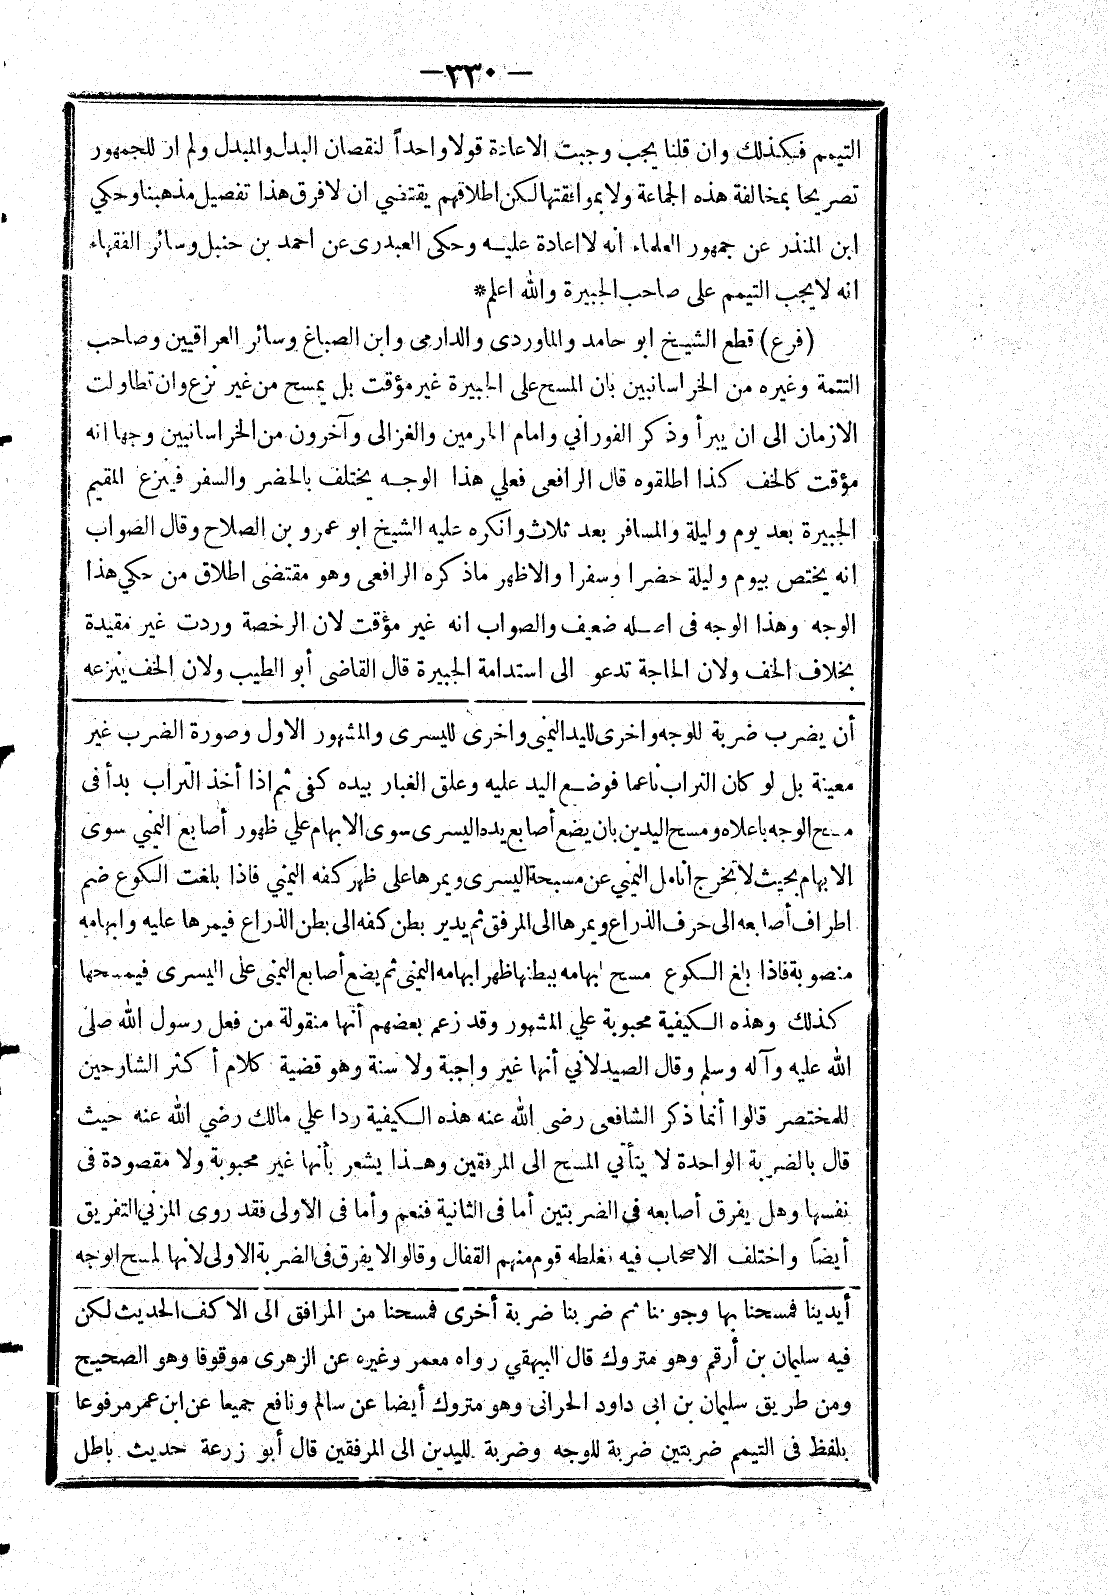 — ٣٣٠ —
التيمم فكذلك وان قلنا يجب وجبت الاعادة قولا واحداً لنقصان البدل والمبدل ولم ار للجمهور
تصريحا بمخالفة هذه الجماعة ولا بموافقتها لكن اطلاقهم يقتضي ان لا فرق هذا تفصيل مذهبنا وحكي
ابن المنذر عن جمهور العلماء انه لا اعادة عليه وحكى العبدرى عن احمد بن حنبل وسائر الفقهاء
انه لا يجب التيمم على صاحب الجبيرة والله اعلم*
(فرع) قطع الشيخ ابو حامد والماوردى والدارمى وابن الصباغ وسائر العراقيين وصاحب
التتمة وغيره من الخراسانيين بان المسح على الجبيرة غير مؤقت بل يمسح من غير نزع وان تطاولت
الازمان الى ان يبرأ وذكر الفوراني وامام الحرمين والغزالى وآخرون من الخراسانيين وجها انه
مؤقت كالخف كذا اطلقوه قال الرافعى فعلي هذا الوجه يختلف بالحضر والسفر فينزع المقيم
الجبيرة بعد يوم وليلة والمسافر بعد ثلاث وانكره عليه الشيخ ابو عمرو بن الصلاح وقال الصواب
انه يختص بيوم وليلة حضرا وسفرا والاظهر ماذكره الرافعى وهو مقتضى اطلاق من حكي هذا
الوجه وهذا الوجه فى اصله ضعيف والصواب انه غير مؤقت لان الرخصة وردت غير مقيدة
بخلاف الخف ولان الحاجة تدعو الى استدامة الجبيرة قال القاضى أبو الطيب ولان الخف ينزعه
أن يضرب ضربة للوجه واخرى لليد اليمنى واخرى لليسرى والمشهور الاول وصورة الضرب غير
معينة بل لو كان التراب ناعما فوضع اليد عليه وعلق الغبار بيده كفى ثم اذا أخذ التراب بدأ فى
مسح الوجه باعلاه ومسح اليدين بان يضع أصابع يده اليسرى سوى الابهام علي ظهور أصابع اليمني سوى
الابهام بحيث لا تخرج انامل اليمني عن مسبحة اليسرى ويمرها على ظهر كفه اليمني فاذا بلغت الكوع ضم
اطراف أصابعه الى حرف الذراع ويمرها الى المرفق ثم يدير بطن كفه الى بطن الذراع فيمرها عليه وابهامه
منصوبة فاذا بلغ الكوع مسح ابهامه ببطنها ظهر ابهامه اليمنى ثم يضع أصابع اليمنى على اليسرى فيمسحها
كذلك وهذه الكيفية محبوبة علي المشهور وقد زعم بعضهم أنها منقولة من فعل رسول الله صلى
الله عليه وآله وسلم وقال الصيدلاني أنها غير واجبة ولا سنة وهو قضية كلام أكثر الشارحين
للمختصر قالوا أنما ذكر الشافعى رضى الله عنه هذه الكيفية ردا علي مالك رضي الله عنه حيث
قال بالضربة الواحدة لا يتأتي المسح الى المرفقين وهذا يشعر بأنها غير محبوبة ولا مقصودة فى
نفسها وهل يفرق أصابعه في الضربتين أما فى الثانية فنعم وأما فى الاولى فقد روى المزني التفريق
أيضاً واختلف الاصحاب فيه فغلطه قوم منهم القفال وقالوا لا يفرق فى الضربة الاولى لانها لمسح الوجه
أيدينا فمسحنا بها وجوهنا ثم ضربنا ضربة أخرى فمسحنا من المرافق الى الاكف الحديث لكن
فيه سليمان بن أرقم وهو متروك قال البيهقي رواه معمر وغيره عن الزهرى موقوفا وهو الصحيح
ومن طريق سليمان بن ابى داود الحرانى وهو متروك أيضا عن سالم ونافع جميعا عن ابن عمر مرفوعا
بلفظ فى التيمم ضربتين ضربة للوجه وضربة لليدين الى المرفقين قال أبو زرعة حديث باطل